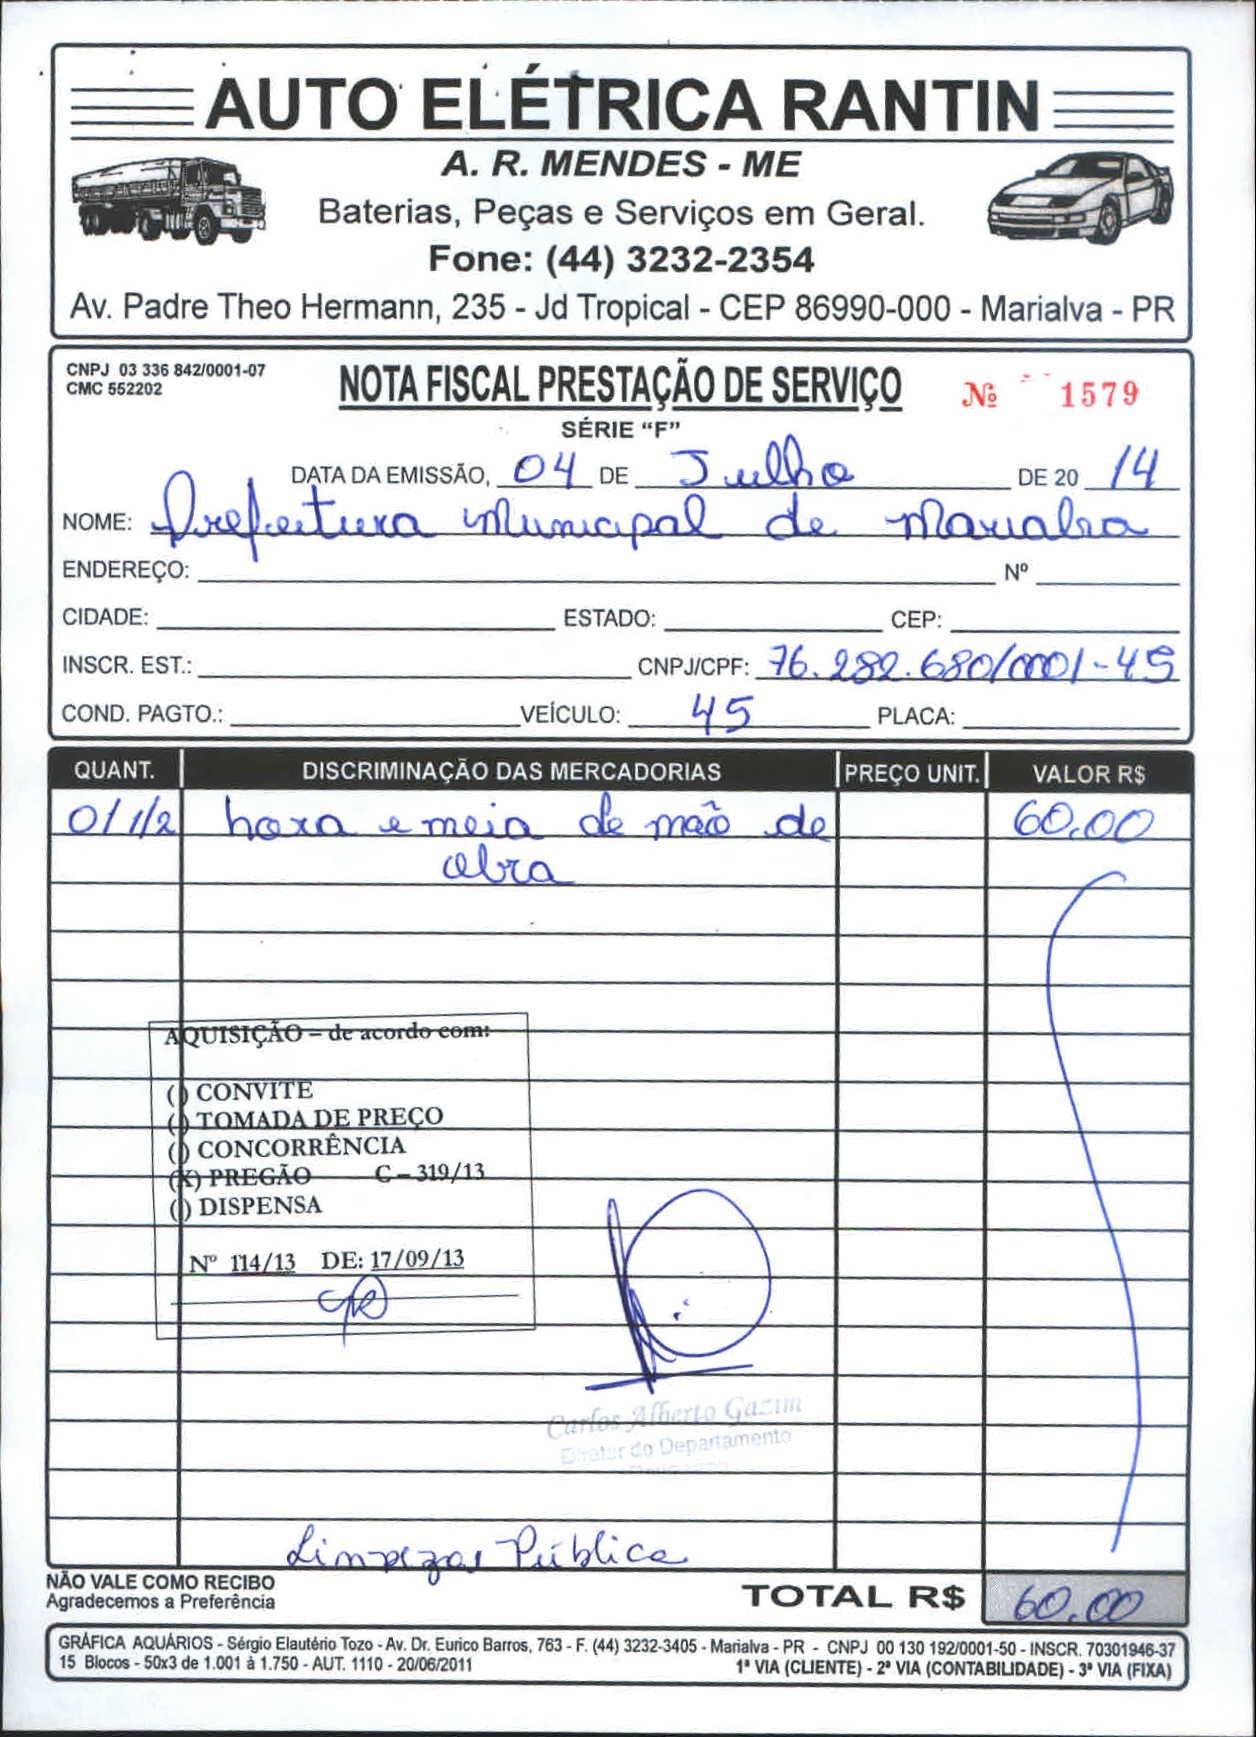 AUTO ELÉTRICA RANTIN
A. R. MENDES - ME
Baterias, Peças e Serviços em Geral.
Fone: (44) 3232-2354
Av. Padre Theo Hermann, 235 - Jd Tropical - CEP 86990-000 - Marialva - PR
CNPJ 03 336 842/0001-07
CMC 552202
NOTA FISCAL PRESTAÇÃO DE SERVIÇO
Nº 1579
SÉRIE “F”
DATA DA EMISSÃO, 04 DE Julho DE 20 14
NOME: Prefeitura Municipal de Marialva
ENDEREÇO: Nº
CIDADE: ESTADO: CEP:
INSCR. EST.: CNPJ/CPF: 76.282.680/0001-45
COND. PAGTO.: VEÍCULO: 45 PLACA:
QUANT. DISCRIMINAÇÃO DAS MERCADORIAS PREÇO UNIT. VALOR R$
01 1/2 hora e meia de mão de 60,00
obra
AQUISIÇÃO – de acordo com:
( ) CONVITE
( ) TOMADA DE PREÇO
( ) CONCORRÊNCIA
(X) PREGÃO C – 319/13
( ) DISPENSA
Nº 114/13 DE: 17/09/13
Carlos Alberto Gazim
Diretor do Departamento
Limpeza Pública
NÃO VALE COMO RECIBO
Agradecemos a Preferência
TOTAL R$ 60,00
GRÁFICA AQUÁRIOS - Sérgio Elautério Tozo - Av. Dr. Eurico Barros, 763 - F. (44) 3232-3405 - Marialva - PR - CNPJ 00 130 192/0001-50 - INSCR. 70301946-37
15 Blocos - 50x3 de 1.001 à 1.750 - AUT. 1110 - 20/06/2011
1ª VIA (CLIENTE) - 2ª VIA (CONTABILIDADE) - 3ª VIA (FIXA)